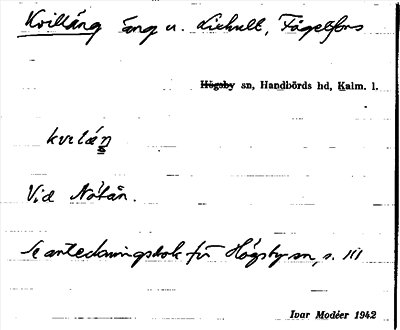 Kvilläng äng u. Lixhult, Fågelfors
Högsby sn, Handbörds hd, Kalm. l.
kvilän
Vid Nötån.
Se anteckningsbok för Högsby sn, s. 111
Ivar Modéer 1942